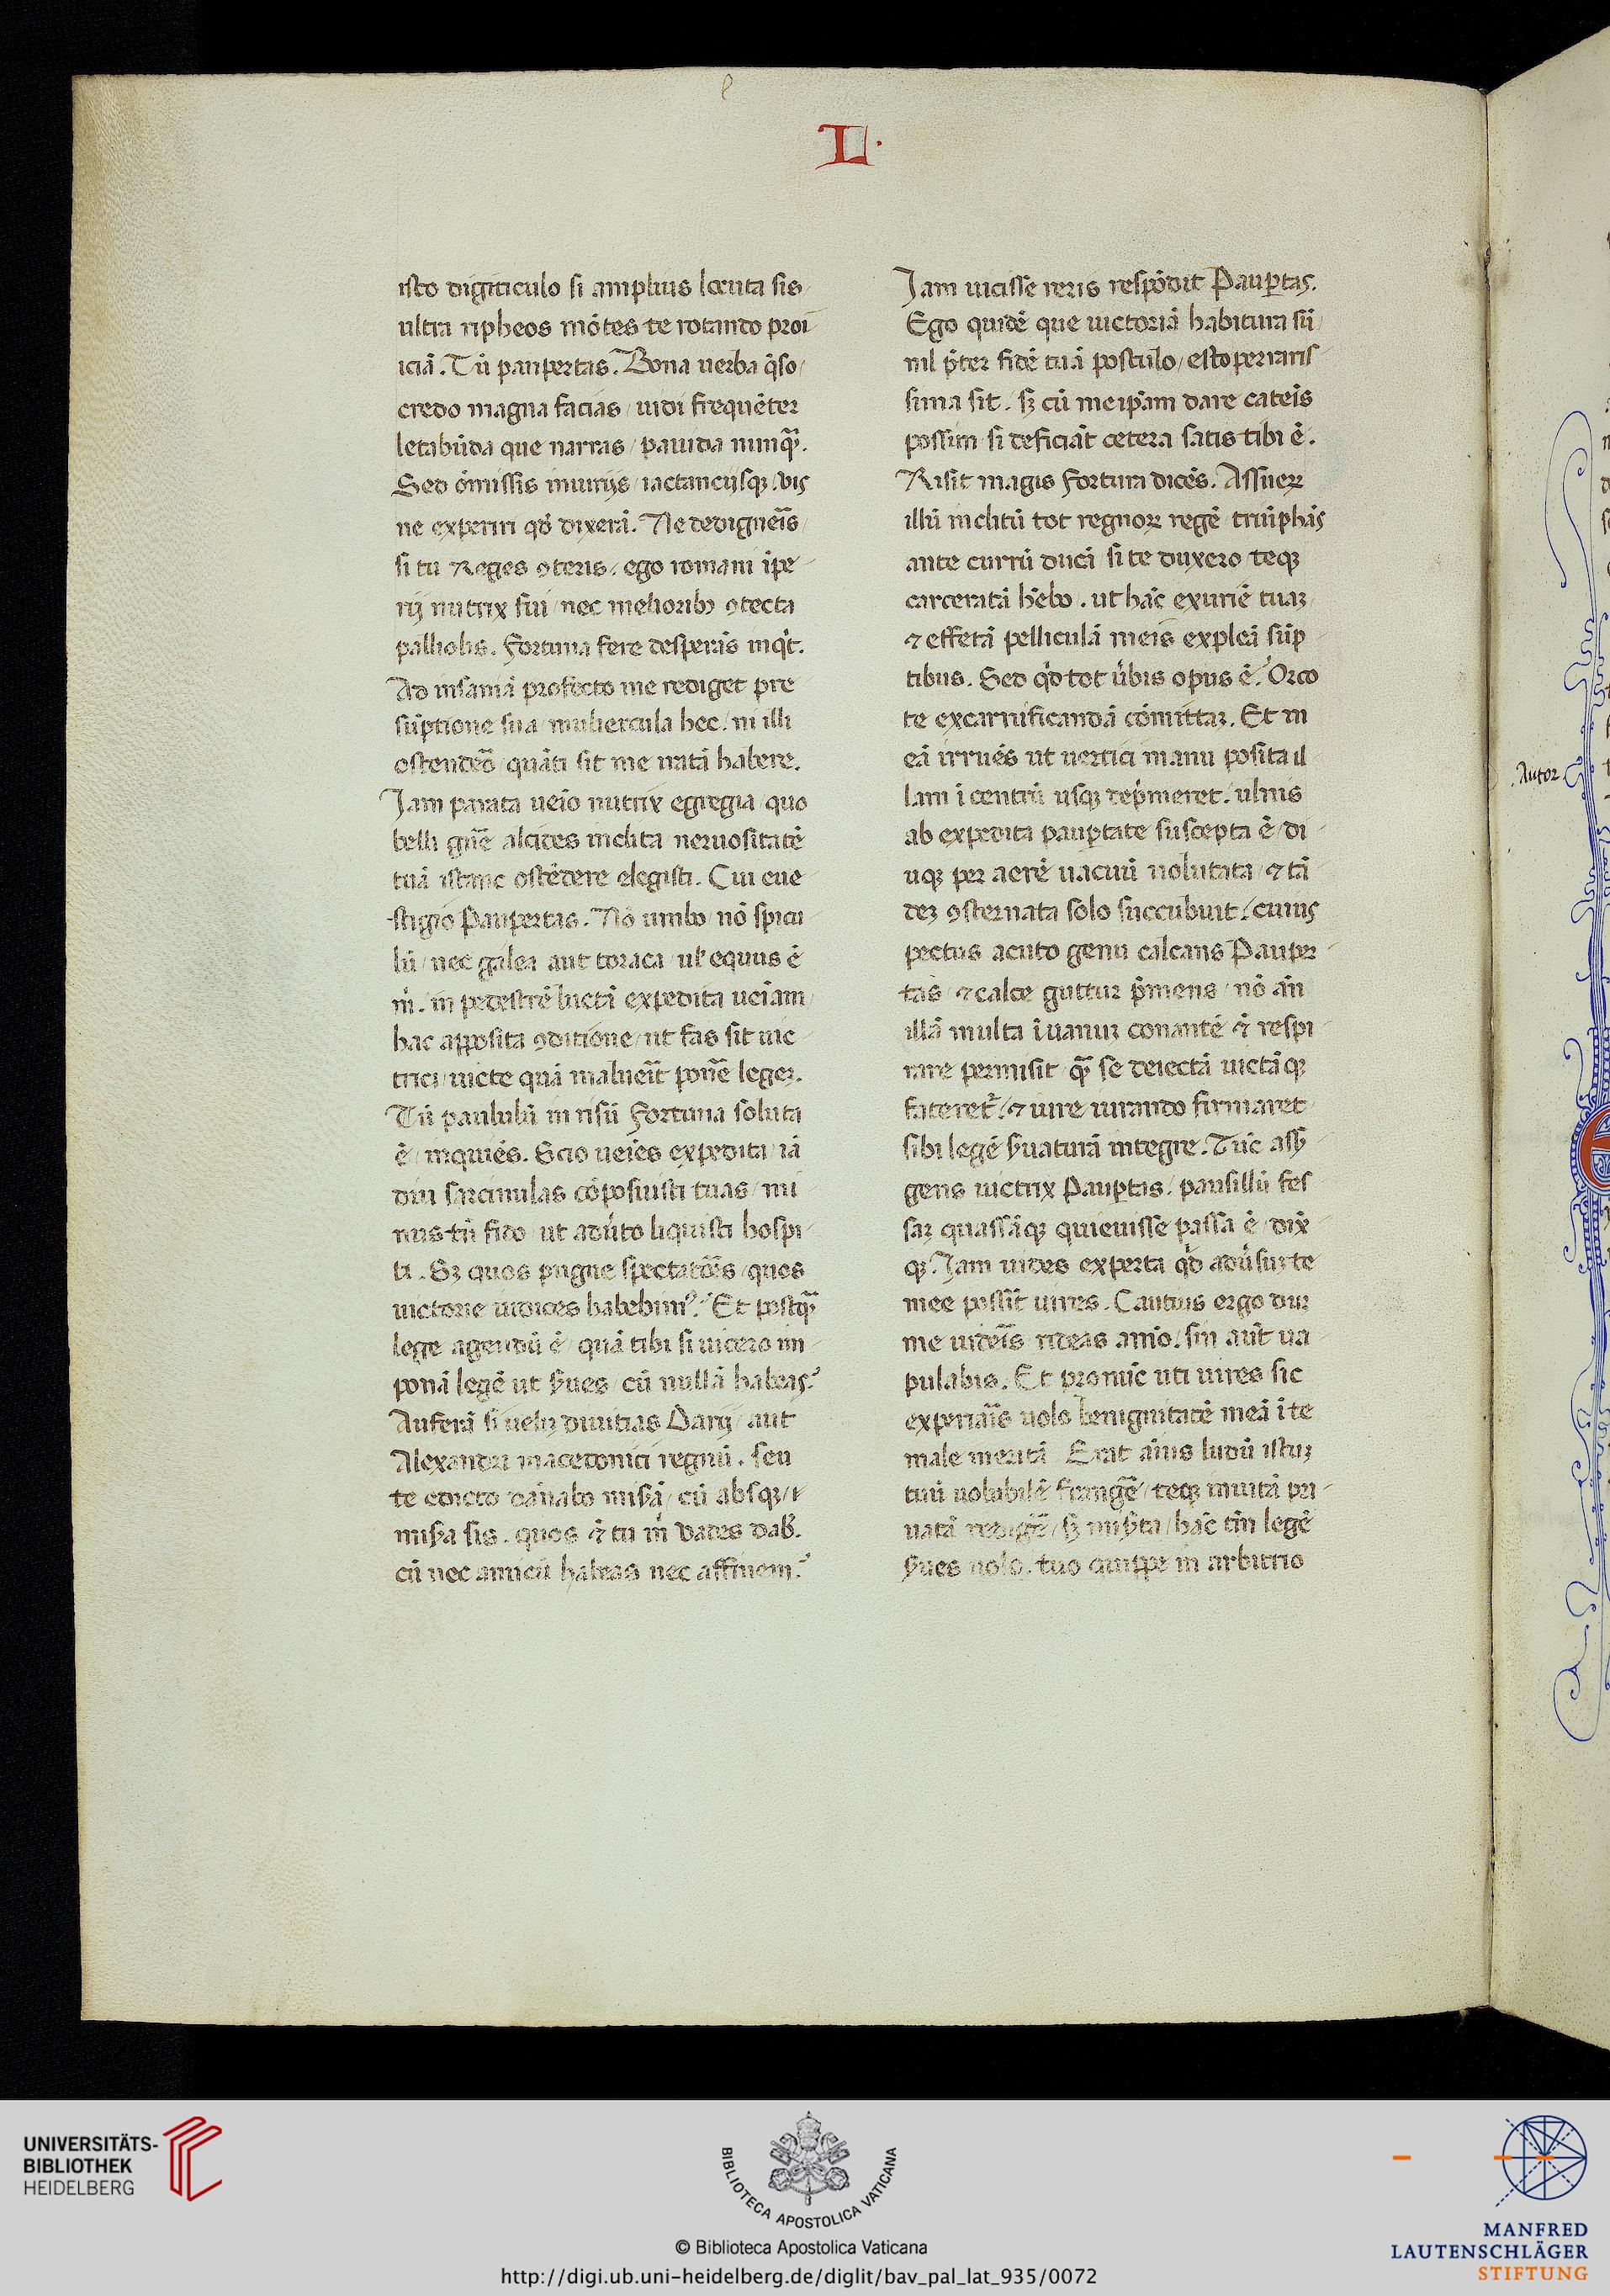 L·
isto digiticulo si amplius locuta sis
ultra ripheos mōtes te rotando proi
iciā. Tū paupertas. Bona uerba q̄so/
credo magna facias / uidi frequēter
letabūda que narras / pauida nunq̄.
Sed ōmissis iniurijs / iactancijsq; vis
ne experiri qd̓ dixerā. Ne dedigneīs
si tu Reges ꝯteris / ego romani īpe
rij nutrix fui / nec melioribꝰ ꝯtecta
palliolis. Fortuna fere desperās inqͥt.
Ad insaniā profecto me rediget pre
sūptione sua muliercula hec / ni illi
ostendeō quāti sit me iratā habere.
Jam parata ueīo nutrix egregia / quo
belli gn̄e alcides inclita neruositatē
tuā istanc ostēdere elegisti. Cui eue
stigio Paupertas. Nō umbo / nō spicu
lū / nec galea aut toraca / ul̓ equus ē
m̓. in pedestrē luctā expedita ueīam /
hac apposita ꝯditione / ut fas sit uic
trici / uicte quā malueīt pon̄e legeꝫ.
Tū paululū in risū Fortuna soluta
ē / inquiēs. Scio ueīes expedita / iā
diu sarcinulas cōposuisti tuas / mi
nus tn̄ fido / ut adūto liquisti hospi
ti. Sꝫ quos pugne spectatōes / quos
uictorie iudices habebimꝰ? Et postq̄
lege agendū ē / quā tibi si uicero im
ponā legē ut ẜues / cū nullā habeas?
Auferā si uelis diuitias Darij / aut
Alexandri macedonici regnū. seu
te edicto dānabo miẜa / cū absq; /
miẜa sis. quos &̄ tu m̓ vades dab̓.
cū nec amicū habeas nec affinem?
Jam uicisse reris respōdit Paup̱tas.
Ego quidē que uictoriā habitura sū
nil p̄ter fidē tuā postulo / esto perraris
sima sit. sꝫ cū meip̄am dare cateīs
possim / si deficiāt cetera satis tibi ē.
Risit magis Fortuna dicēs. Assueꝝ
illū inclitū tot regnoꝝ regē triūphās
ante currū duci si te duxero / teq;
carceratā hēbo. ut hāc exuriē tuaꝫ
⁊ effetā pelliculā meis expleā sūp
tibus. Sed qͥd tot ūbis opus ē? Orco
te excarnificandā cōmittaꝫ. Et in
eā irruēs ut uertici manu posita il
lam ī centrū usq; dep̓meret. ulnis
ab expedita paup̱tate suscepta ē / di
uq; per aerē uacuū uolutata / ⁊ tā
deꝫ ꝯsternata solo succubuit. cuius
pectus acuto genu calcans Pauper
tas / ⁊ calce guttur p̓mens / nō ān
illā multa ī uanuꝫ conantē &̄ respi
rare permisit q̄ se deiectā uictāq;
fateret᷑ / ⁊ iure iurando firmaret
sibi legē ẜuaturā integre. Tūc assur
gens uictrix Paup̱tas / pausillū fes
saꝫ quassāq; quieuisse passa ē / dix̄
q; Jam uides experta qd̓ adūsus te
mee possīt uires. Cautius ergo dum
me uideīs rideas amō / sin aūt ua
pulabis. Et pronūc uti uires sic
experiaīs uolo benignitatē meā ī te
male meritā. Erat aīus ludū istuꝫ
tuū uolubilē frangē / teq; inuitā pri
uatā redigē / sꝫ miẜta / hāc tn̄ legē
ẜues uolo. tuo quippe in arbitrio
Autor
UNIVERSITÄTS-
BIBLIOTHEK
HEIDELBERG
BIBLIOTECA APOSTOLICA VATICANA
© Biblioteca Apostolica Vaticana
http://digi.ub.uni-heidelberg.de/diglit/bav_pal_lat_935/0072
MANFRED
LAUTENSCHLÄGER
STIFTUNG